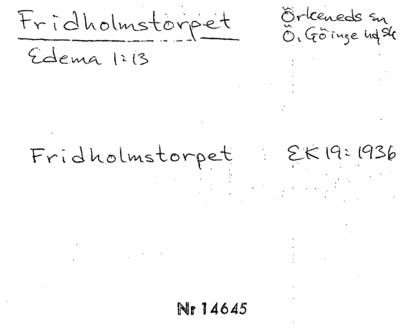 Fridholmstorpet
Örkeneds sn
Ö. Göinge hd Sk
Edema 1:13
Fridholmstorpet EK 19:1936
Nr 14645